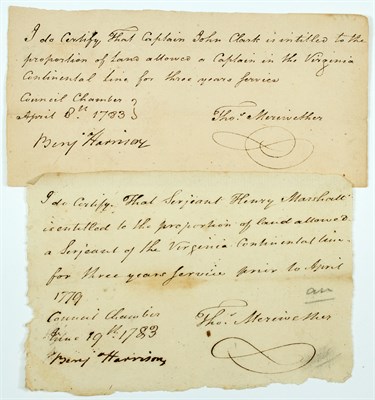 I do Certify That Captain John Clark is entitled to the
proportion of Land allowed a Captain in the Virginia
Continental line for three years service
Council Chamber
April 8.th 1783
Tho.s Meriwether
Benj Harrison
I do Certify That Serjeant Henry Marshall
is entitled to the proportion of land allowed
a Serjeant of the Virginia Continental line
for three years service prior to April
1779
Council Chamber
June 19th 1783
Tho.s Meriwether
Benj Harrison